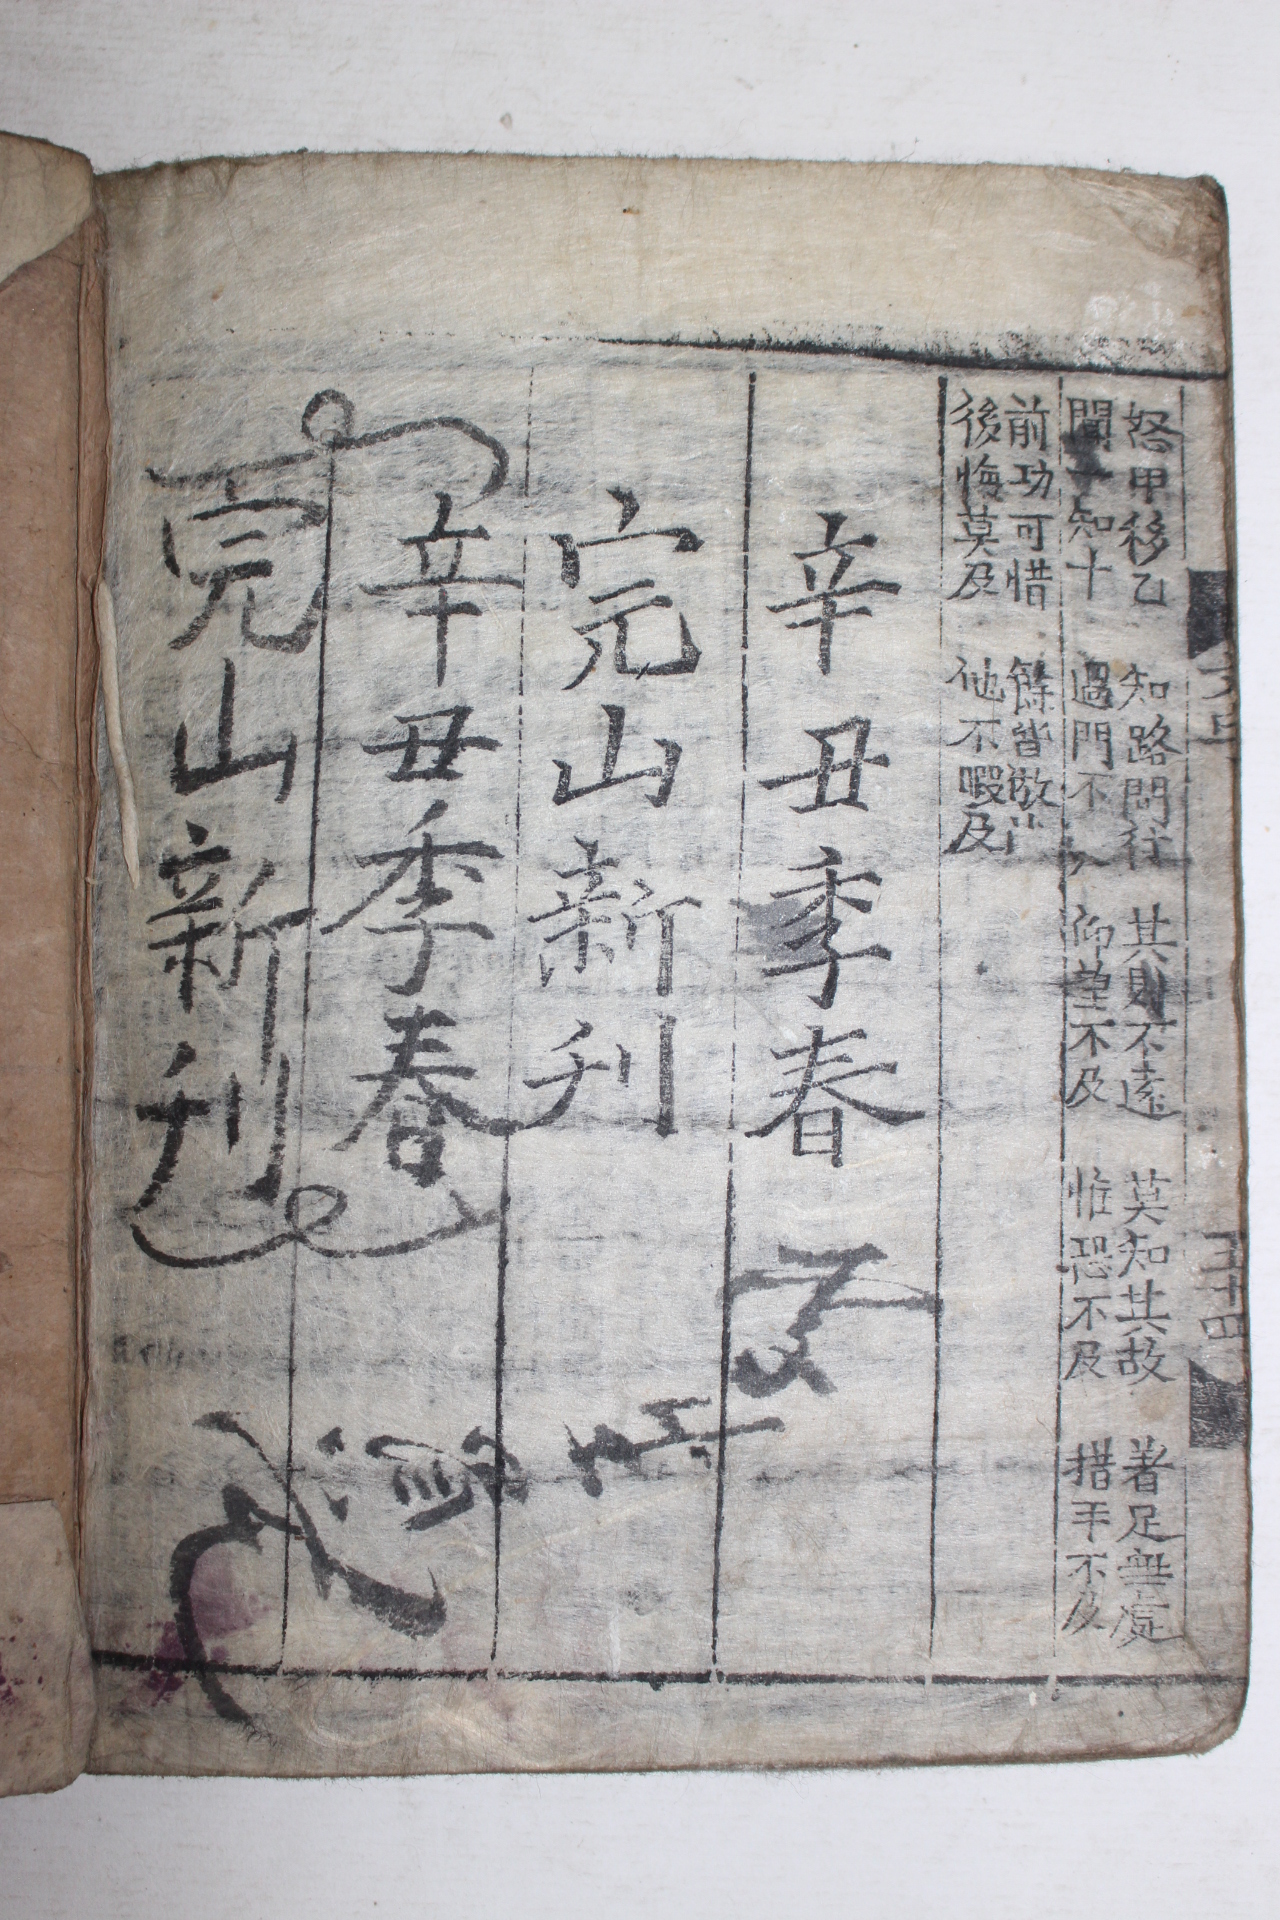 怒甲移乙 知路問行 其則不遠 莫知其故 著足無處
聞一知十 過門不入 仰望不及 惟恐不及 措手不及
前功可惜 餘皆倣此
後悔莫及 他不暇及
辛丑季春
完山新刊
辛丑季春
完山新刊
五十四